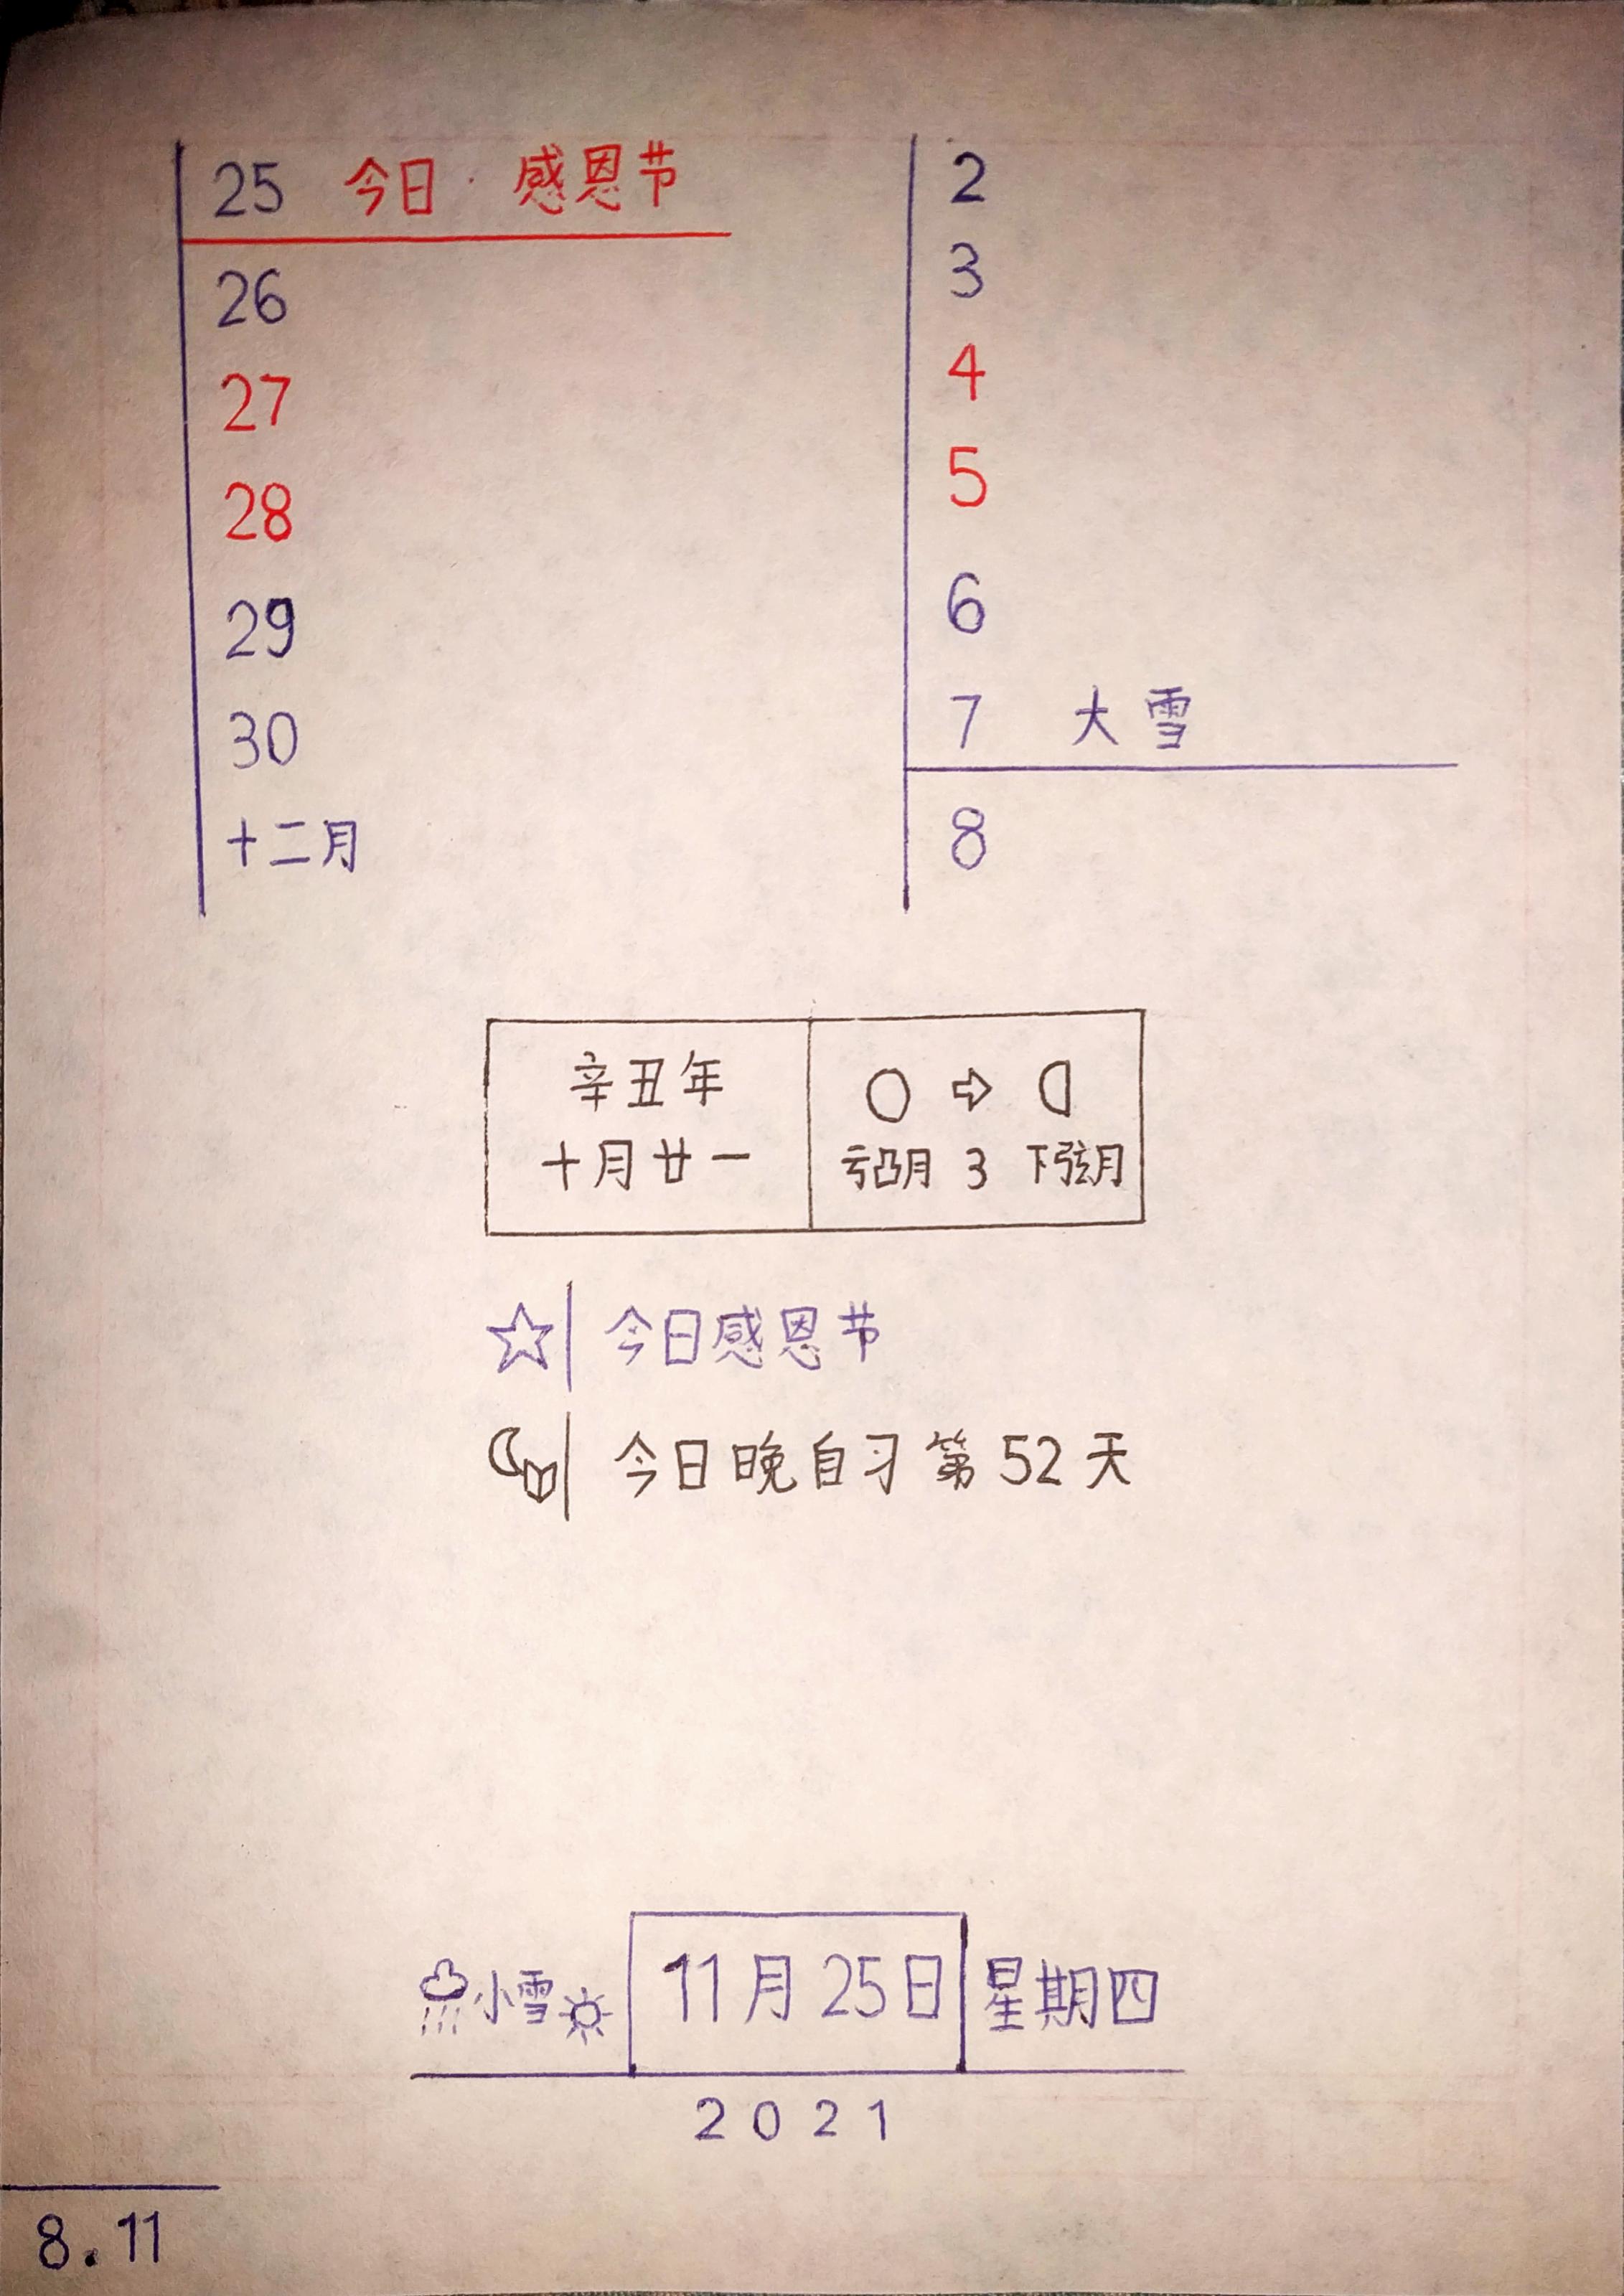 25 今日·感恩节
26
27
28
29
30
十二月
2
3
4
5
6
7 大雪
8
辛丑年
十月廿一
亏凸月 3 下弦月
今日感恩节
今日晚自习第52天
小雪
11月25日
星期四
2021
8.11